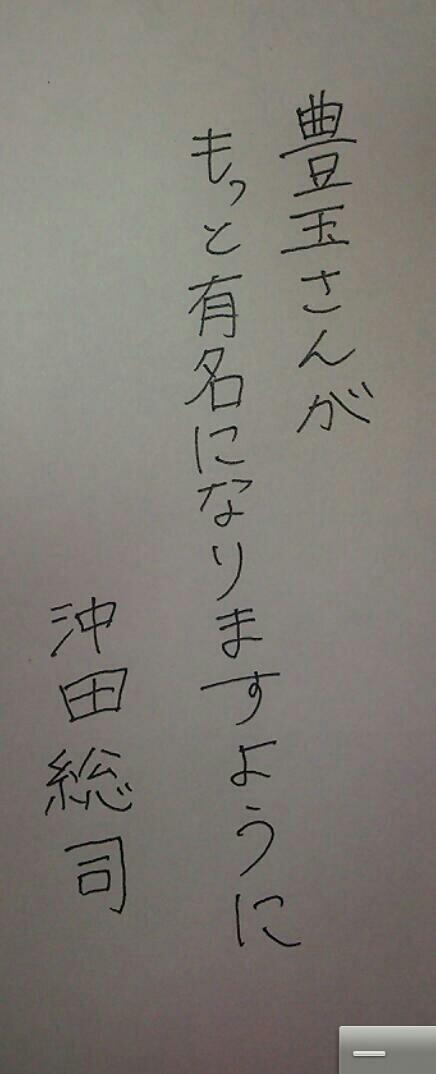 豊玉さんが
もっと有名になりますように
沖田総司